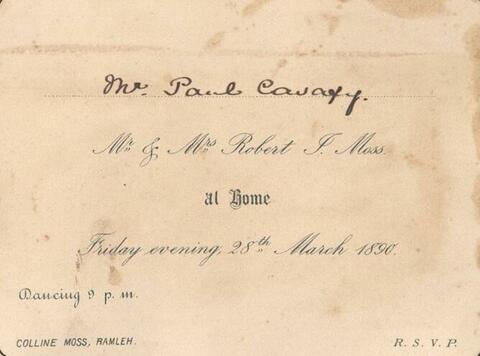 Mr. Paul Cavafy.
Mr & Mrs Robert J. Moss.
at Home
Friday evening, 28th March 1890.
Dancing 9 p.m.
COLLINE MOSS, RAMLEH.
R. S. V. P.